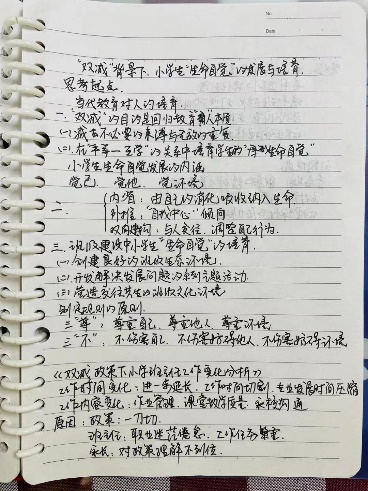 No.
Date
"双减"背景下，小学生"生命自觉"的发展与培育.
思考起点.
当代教育对人的培育.
一、"双减"的目的是回归教育育人本质
(一)减去不必要的来源与无效的重复.
(二)在"手笔一至学"的关系中培育学生的"生命自觉"
小学生生命自觉发展的内涵
觉己. 觉他. 觉环境
二、 内省：由自己的消化吸收纳入生命.
外推："自我中心"倾向
双向建构：与人交往、调整己行为.
三、班级建设中小学生"生命自觉"的培育.
(一)创建良好的班级生态环境.
(二)开发解决发展问题的系列主题活动
(三)营造交往共生的班级文化环境
制定规则的原则
三"尊"：尊重自己、尊重他人、尊重环境
三"不"：不伤害己、不伤害他人、不伤害环境
《双减政策下小学班主任工作变化分析》
工作时间变化：进一步延长、工作时间切割、专业发展时间压缩
工作内容变化：作业管理、课堂教学质量、家校沟通
原因：政策：一刀切.
班主任：职业倦怠、工作任务繁重.
家长：对政策理解不到位.